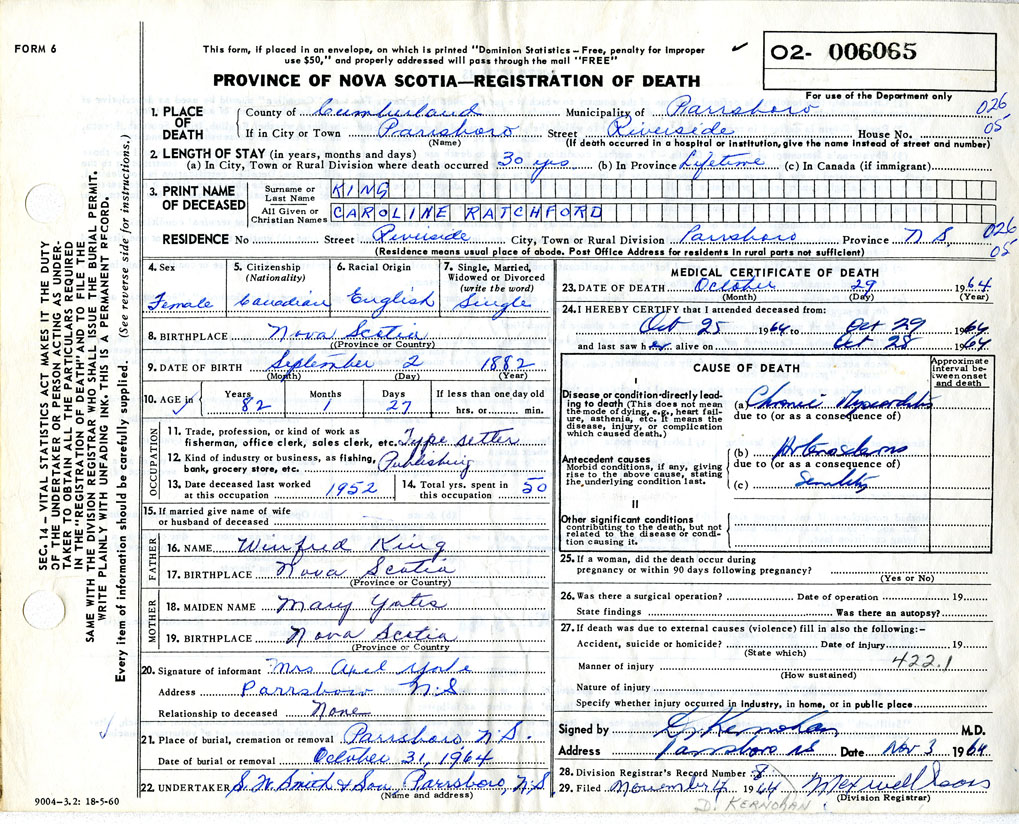 FORM 6
This form, if placed in an envelope, on which is printed "Dominion Statistics – Free, penalty for Improper
use $50," and properly addressed will pass through the mail "FREE"
✓
O2- 006065
PROVINCE OF NOVA SCOTIA—REGISTRATION OF DEATH
For use of the Department only
1. PLACE OF DEATH
County of Cumberland Municipality of Parrsboro 026
If in City or Town Parrsboro Street Riverside House No. 05
(Name) (If death occurred in a hospital or institution, give the name instead of street and number)
2. LENGTH OF STAY (in years, months and days)
(a) In City, Town or Rural Division where death occurred 30 yrs (b) In Province Lifetime (c) In Canada (if immigrant)
3. PRINT NAME OF DECEASED
Surname or Last Name KING
All Given or Christian Names CAROLINE RATCHFORD
RESIDENCE No Street Riverside City, Town or Rural Division Parrsboro Province N S, 026
(Residence means usual place of abode. Post Office Address for residents in rural parts not sufficient) 05
4. Sex Female
5. Citizenship (Nationality) Canadian
6. Racial Origin English
7. Single, Married, Widowed or Divorced (write the word) Single
8. BIRTHPLACE Nova Scotia
(Province or Country)
9. DATE OF BIRTH September 2 1882
(Month) (Day) (Year)
10. AGE in Years Months Days If less than one day old
✓ 82 1 27 hrs. or min.
OCCUPATION
11. Trade, profession, or kind of work as
fisherman, office clerk, sales clerk, etc. Type setter
12. Kind of industry or business, as fishing,
bank, grocery store, etc. Publishing
13. Date deceased last worked
at this occupation 1952
14. Total yrs. spent in
this occupation 50
15. If married give name of wife
or husband of deceased
FATHER
16. NAME Winfred King
17. BIRTHPLACE Nova Scotia
(Province or Country)
MOTHER
18. MAIDEN NAME Mary Yates
19. BIRTHPLACE Nova Scotia
(Province or Country)
20. Signature of informant Mrs. Axel Yole
Address Parrsboro N.S
Relationship to deceased None
✓
21. Place of burial, cremation or removal Parrsboro N.S.
Date of burial or removal October 31, 1964
22. UNDERTAKER S. W. Smith & Son, Parrsboro, N.S
(Name and address)
MEDICAL CERTIFICATE OF DEATH
23. DATE OF DEATH October 29 1964
(Month) (Day) (Year)
24. I HEREBY CERTIFY that I attended deceased from:
Oct 25 1964 to Oct 29 1964
and last saw her alive on Oct 28 1964
CAUSE OF DEATH
Approximate interval between onset and death
I
Disease or condition directly leading to death (This does not mean
the mode of dying, e.g., heart failure, asthenia, etc. It means the
disease, injury, or complication
which caused death.)
(a) Chronic Myocarditis
due to (or as a consequence of)
Antecedent causes
Morbid conditions, if any, giving
rise to the above cause, stating
the underlying condition last.
(b)
due to (or as a consequence of)
(c) Senility
II
Other significant conditions
contributing to the death, but not
related to the disease or condition causing it.
25. If a woman, did the death occur during
pregnancy or within 90 days following pregnancy?
(Yes or No)
26. Was there a surgical operation? Date of operation 19
State findings Was there an autopsy?
27. If death was due to external causes (violence) fill in also the following:–
Accident, suicide or homicide? Date of injury 19
(State which)
422.1
Manner of injury
(How sustained)
Nature of injury
Specify whether injury occurred in industry, in home, or in public place
Signed by D. Kernohan M.D.
Address Parrsboro NS Date Nov 3 1964
28. Division Registrar's Record Number 8
29. Filed November 4 1964
(Division Registrar)
D. KERNOHAN
SEC. 14 – VITAL STATISTICS ACT MAKES IT THE DUTY
OF THE UNDERTAKER OR PERSON ACTING AS UNDER-
TAKER TO OBTAIN ALL THE PARTICULARS REQUIRED
IN THE "REGISTRATION OF DEATH" AND TO FILE THE
SAME WITH THE DIVISION REGISTRAR WHO SHALL ISSUE THE BURIAL PERMIT.
WRITE PLAINLY WITH UNFADING INK. THIS IS A PERMANENT RECORD.
Every item of information should be carefully supplied. (See reverse side for instructions.)
9004–3.2: 18-5-60